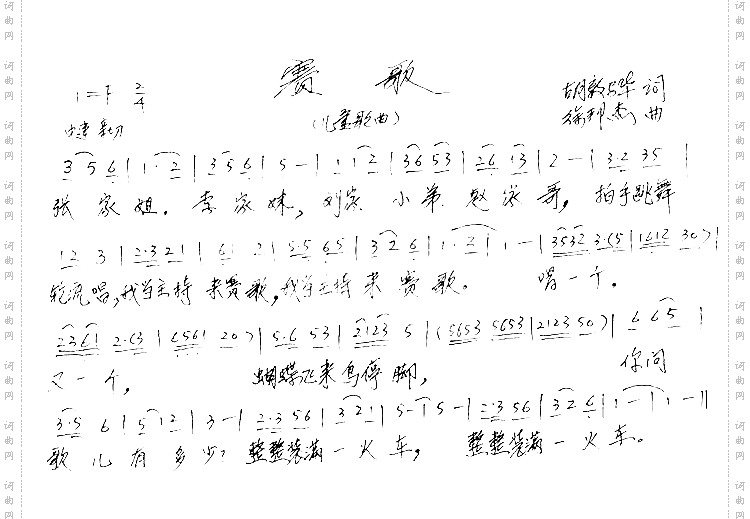 赛歌
(儿童歌曲)
1=F 2/4
胡敦骅 词
徐邦杰 曲
中速
3 5 6 | 1· 2 | 3 5 6 | 5 - | 1 1 2 | 36 53 | 26 13 | 2 - | 3·2 35 |
张家姐, 李家妹, 刘家小弟赵家哥, 拍手跳舞
12 3 | 2·3 21 | 61 2 | 5·5 65 | 3 2 6 | 1· 2 | 1 - | 3532 3·(5 | 1612 30) |
轮流唱, 我当主持来赛歌, 我当主持来赛歌。 唱一个,
2361 2·(3 | 6561 20) | 5·6 53 | 2123 5 | (5653 5653 | 2123 50) | 6 65 |
又一个, 蝴蝶飞来鸟停脚, 你问
3·5 6 | 5 12 | 3 - | 2·3 56 | 3 21 | 5 - | 5 - | 2·3 56 | 3 2 6 | 1 - | 1 - ||
歌儿有多少? 整整装满一火车, 整整装满一火车。
词曲网